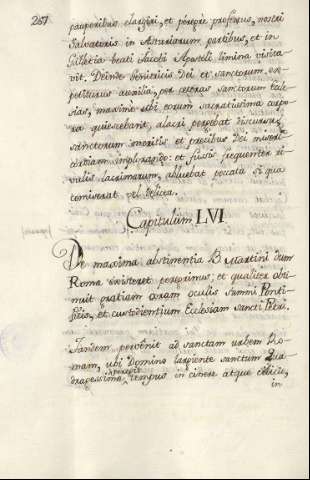 267
pauperibus elargiri, et peregre profectus, nostri
Salvatoris in Asturiarum partibus, et in
Gallecia beati Jacobi Apostoli limina visita-
vit. Deinde beneficiis Dei et sanctorum ex-
petiturus auxilia, per extras sanctorum Eccle-
sias, maxime ubi eorum sacratissima corpo-
ra quiescebant, alacri pergebat discursu,
sanctorum meritis et precibus Dei miseri-
cordiam implorando: et fusis frequenter ri-
vulis lacrimarum, abluebat pecata si qua
comiserat vel delicta.
Capitulum LVI
De maxima abstinentia B. Martini dum
Roma existeret peregrinus; et qualiter obti-
nuit gratiam coram oculis summi Ponti-
ficis, et custodientium Ecclesiam sancti Petri.
Tandem pervenit ad sanctam urbem Ro-
mam, ubi Domino largiente sanctum Qua-
dragessimæ peregit tempus in cinere atque cilicio,
in